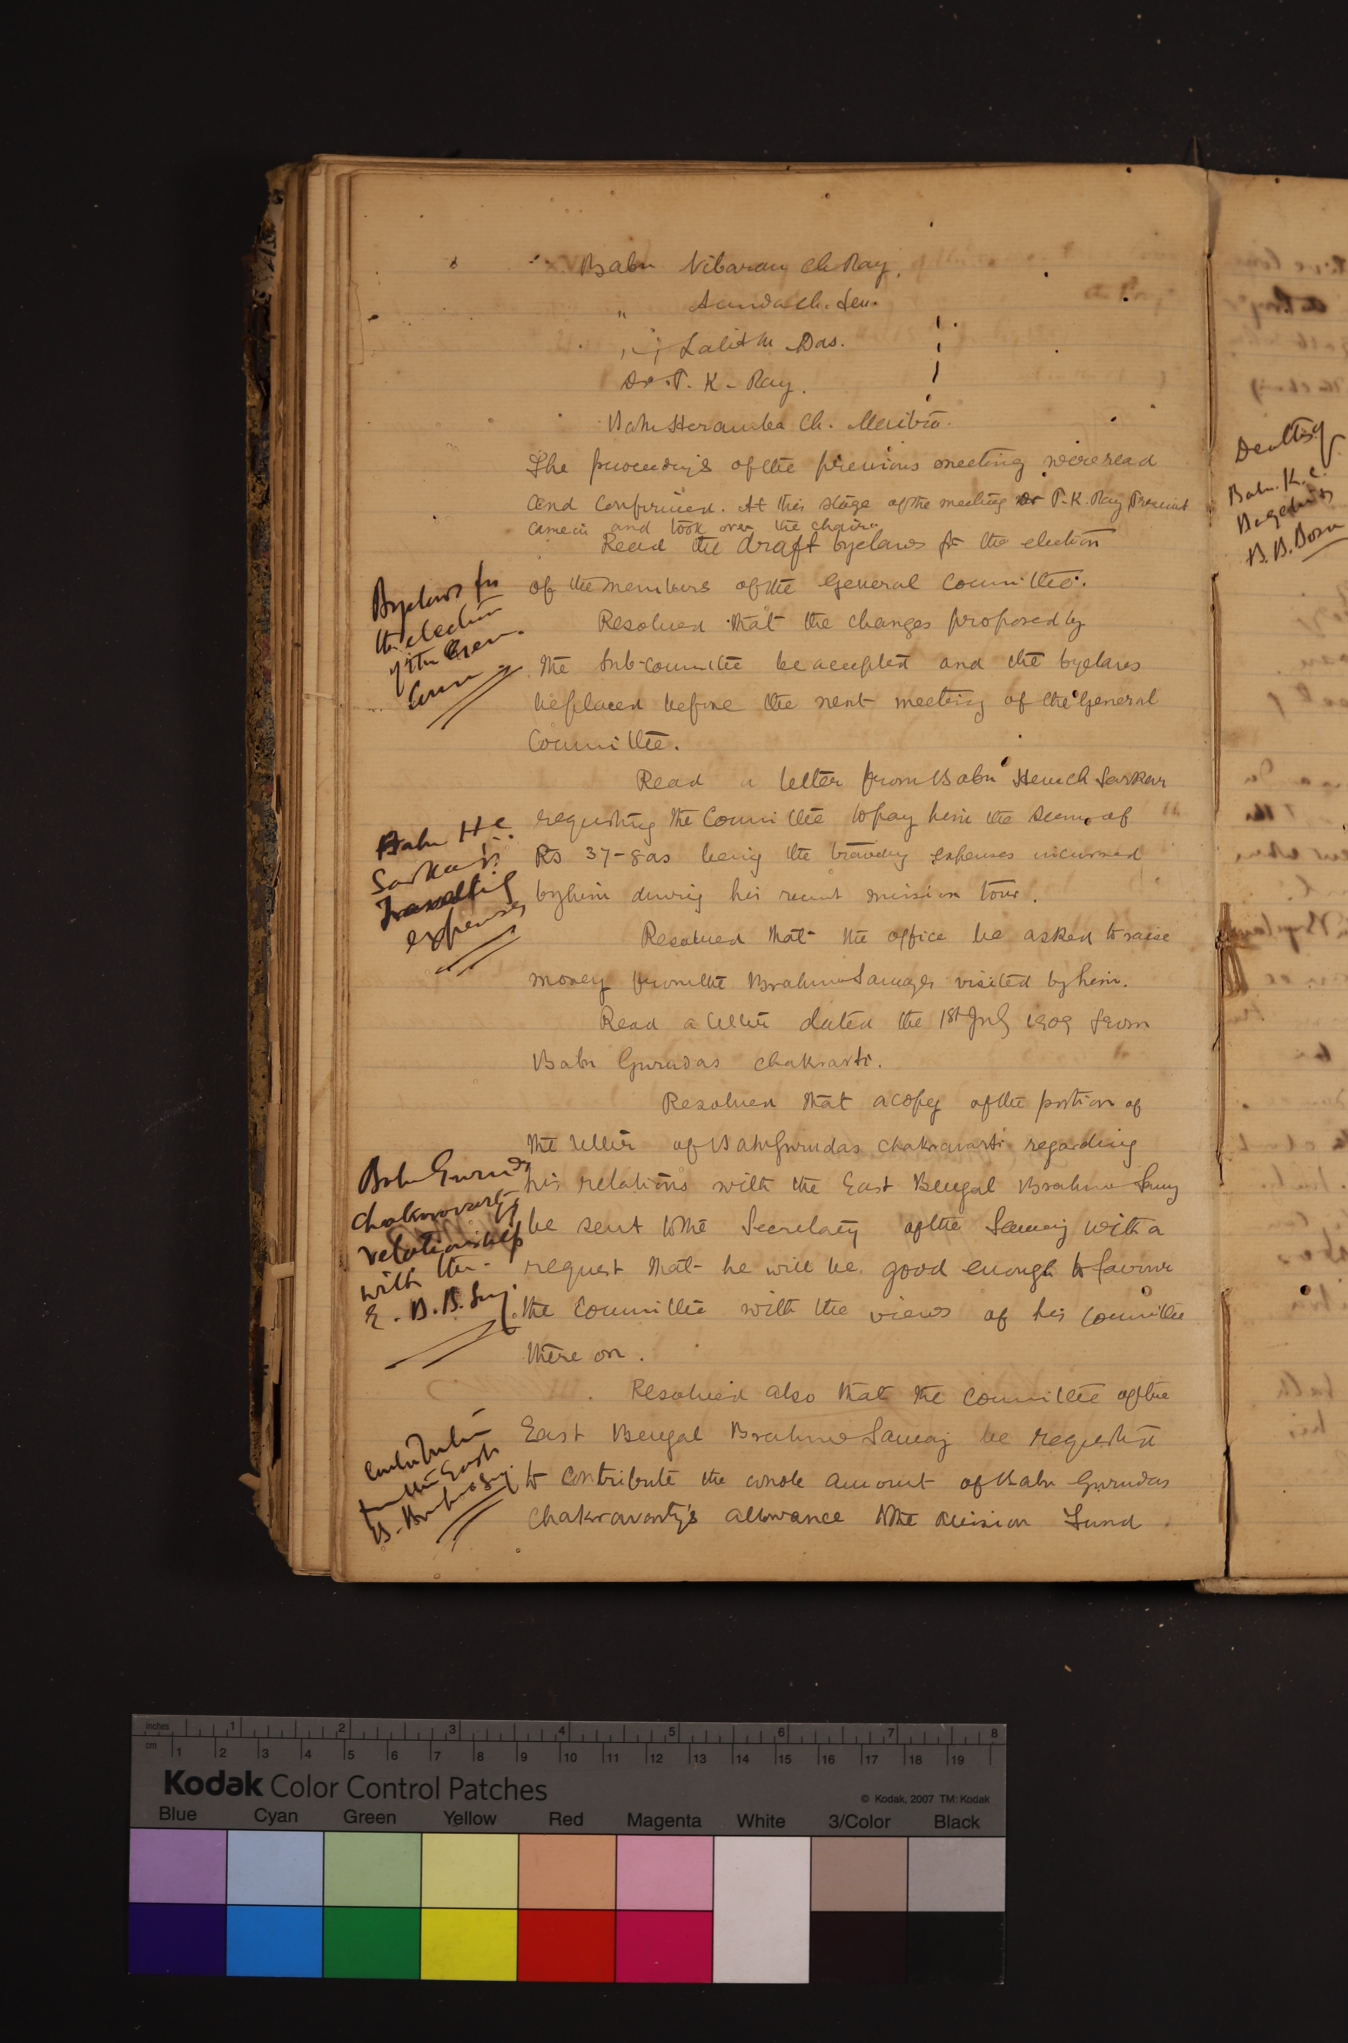 Babu Nibaran Ch Ray.
" Ananda Ch. Sen.
" Lalit M Das.
Dr. P. K. Ray.
Babu Heramba Ch. Maitra.
The proceedings of the previous meeting were read
and confirmed. At this stage of the meeting Dr P. K. Ray President
came in and took over the chair.
Read the draft byelaws for the election
of the members of the General Committee.
Byelaws for
the election
of the Gen.
Comm
Resolved that the changes proposed by
the Sub-committee be accepted and the byelaws
be placed before the next meeting of the General
Committee.
Read a letter from Babu Hem Ch Sarkar
requesting the Committee to pay him the sum of
Rs 37-8as being the travelling expenses incurred
by him during his recent mission tour.
Babu H. C.
Sarkar's
Travelling
expenses
Resolved that the office be asked to raise
money from the Brahmo Samajes visited by him.
Read a letter dated the 1st July 1909 from
Babu Gurudas Chakravarti.
Resolved that a copy of the portion of
the letter of Babu Gurudas Chakravarti regarding
his relations with the East Bengal Brahmo Samaj
be sent to the Secretary of the Samaj with a
request that he will be good enough to favour
the Committee with the views of his Committee
there on.
Babu Gurudas
Chakravarty's
relationship
with the
E. B. B. Smj.
Resolved also that the Committee of the
East Bengal Brahmo Samaj be requested
to contribute the whole amount of Babu Gurudas
Chakravarty's allowance to the Mission Fund
Contribution
from the East
B. Brahmo Smj.
Babu K. C.
B. B. Bose
inches 1 2 3 4 5 6 7 8
cm 1 2 3 4 5 6 7 8 9 10 11 12 13 14 15 16 17 18 19
Kodak Color Control Patches
© Kodak, 2007 TM: Kodak
Blue Cyan Green Yellow Red Magenta White 3/Color Black